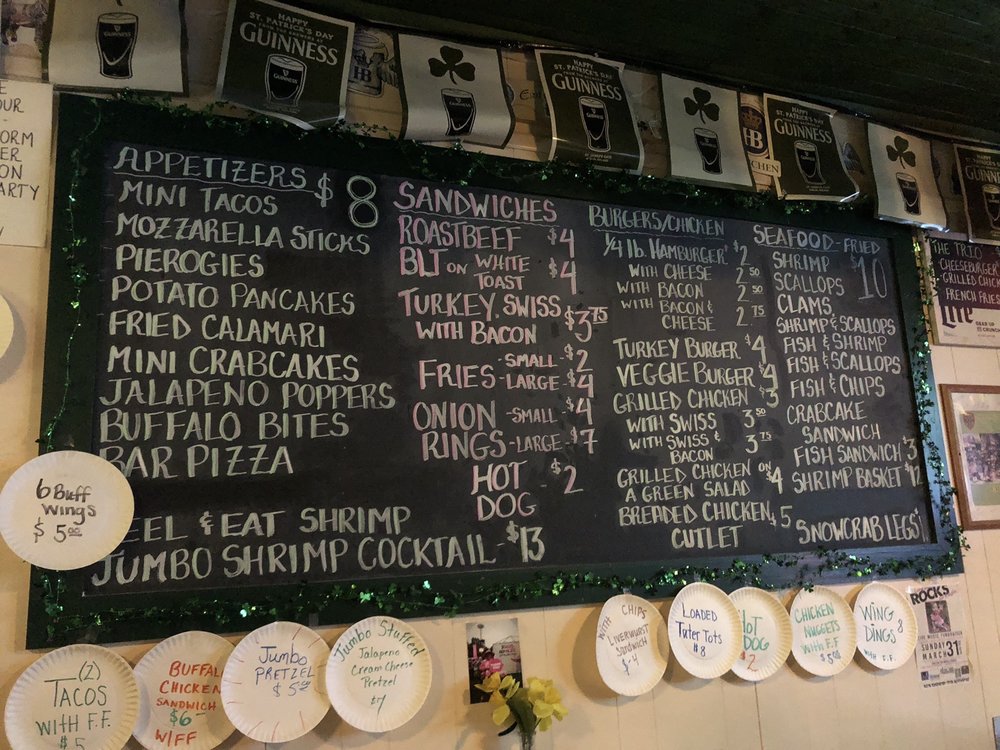 HAPPY
ST. PATRICK'S DAY
GUINNESS
HAPPY
ST. PATRICK'S DAY
GUINNESS
HAPPY
ST. PATRICK'S DAY
GUINNESS
GUINNESS
OUR
ORM
ER
ON
ARTY
APPETIZERS $8
MINI TACOS
MOZZARELLA STICKS
PIEROGIES
POTATO PANCAKES
FRIED CALAMARI
MINI CRABCAKES
JALAPENO POPPERS
BUFFALO BITES
BAR PIZZA
EEL & EAT SHRIMP
JUMBO SHRIMP COCKTAIL - $13
SANDWICHES
ROASTBEEF $4
BLT ON WHITE TOAST $4
TURKEY, SWISS
WITH BACON $3.75
FRIES - SMALL - $2
- LARGE - $4
ONION - SMALL $4
RINGS - LARGE - $7
HOT
DOG - $2
BURGERS/CHICKEN
1/4 lb. HAMBURGER $2
WITH CHEESE 2.50
WITH BACON 2.50
WITH BACON &
CHEESE 2.75
TURKEY BURGER $4
VEGGIE BURGER $4
GRILLED CHICKEN $3
WITH SWISS 3.50
WITH SWISS &
BACON 3.75
GRILLED CHICKEN ON
A GREEN SALAD $4
BREADED CHICKEN $5
CUTLET
SEAFOOD - FRIED
SHRIMP $10
SCALLOPS
CLAMS
SHRIMP & SCALLOPS
FISH & SHRIMP
FISH & SCALLOPS
FISH & CHIPS
CRABCAKE
SANDWICH
FISH SANDWICH $3
SHRIMP BASKET $12
SNOWCRAB LEGS $
THE TRIO
- CHEESEBURGER
- GRILLED CHICK
FRENCH FRIES
Lite
6 Buff
Wings
$ 5.00
(2)
TACOS
WITH F.F.
$5
BUFFAL
CHICKEN
SANDWICH
$6-
W/FF
Jumbo
PRETZEL
$ 5.00
Jumbo Stuffed
Jalapeno
Cream Cheese
Pretzel
$7
WITH CHIPS
LIVERWURST
SANDWICH
$4
LOADED
Tater Tots
$8
HOT
DOG
$2
CHICKEN
NUGGETS
WITH F.F
$5.00
WING
DINGS 8
WITH F.F.
ROCKS
SUNDAY MARCH 31